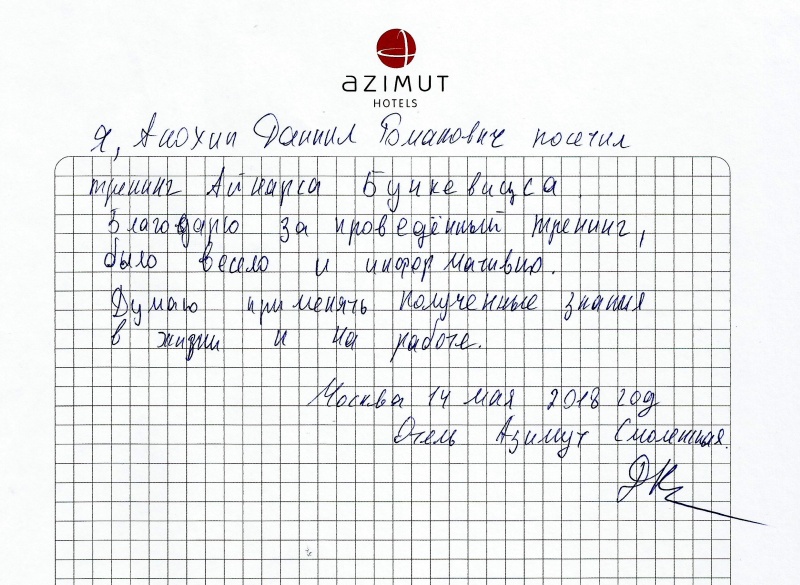 AZIMUT
HOTELS
Я, Анохин Даниил Романович посетил
тренинг Айнарса Бункевицса.
Благодарю за проведённый тренинг,
было весело и информативно.
Думаю применять полученные знания
в жизни и на работе.
Москва 14 мая 2018 год
Отель Азимут Смоленская.